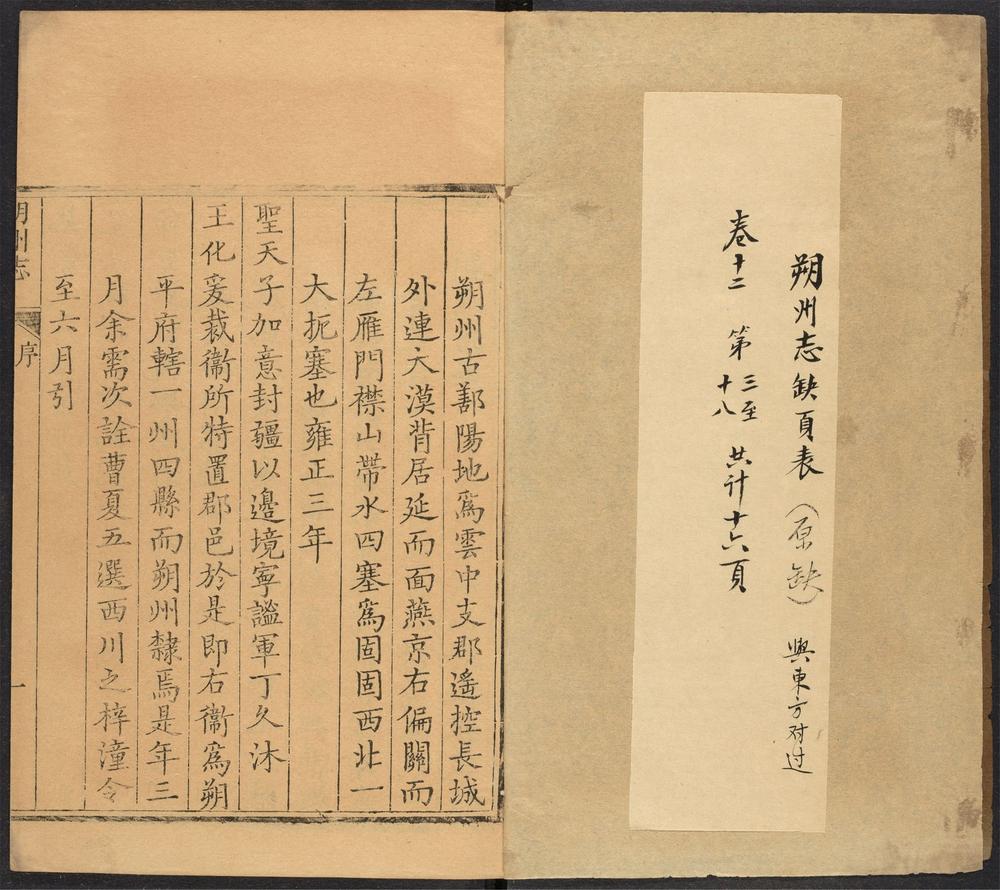 朔州志缺頁表（原缺） 與東方对过
卷十二 第三至十八 共计十六頁
朔州古鄯陽地爲雲中支郡遥控長城
外連大漠背居延而面燕京右偏關而
左雁門襟山帶水四塞爲固固西北一
大扼塞也雍正三年
聖天子加意封疆以邊境寧謐軍丁久沐
王化爰裁衞所特置郡邑於是即右衞爲朔
平府轄一州四縣而朔州隸焉是年三
月余需次詮曹夏五選西川之梓潼令
至六月引
朔州志
序
一